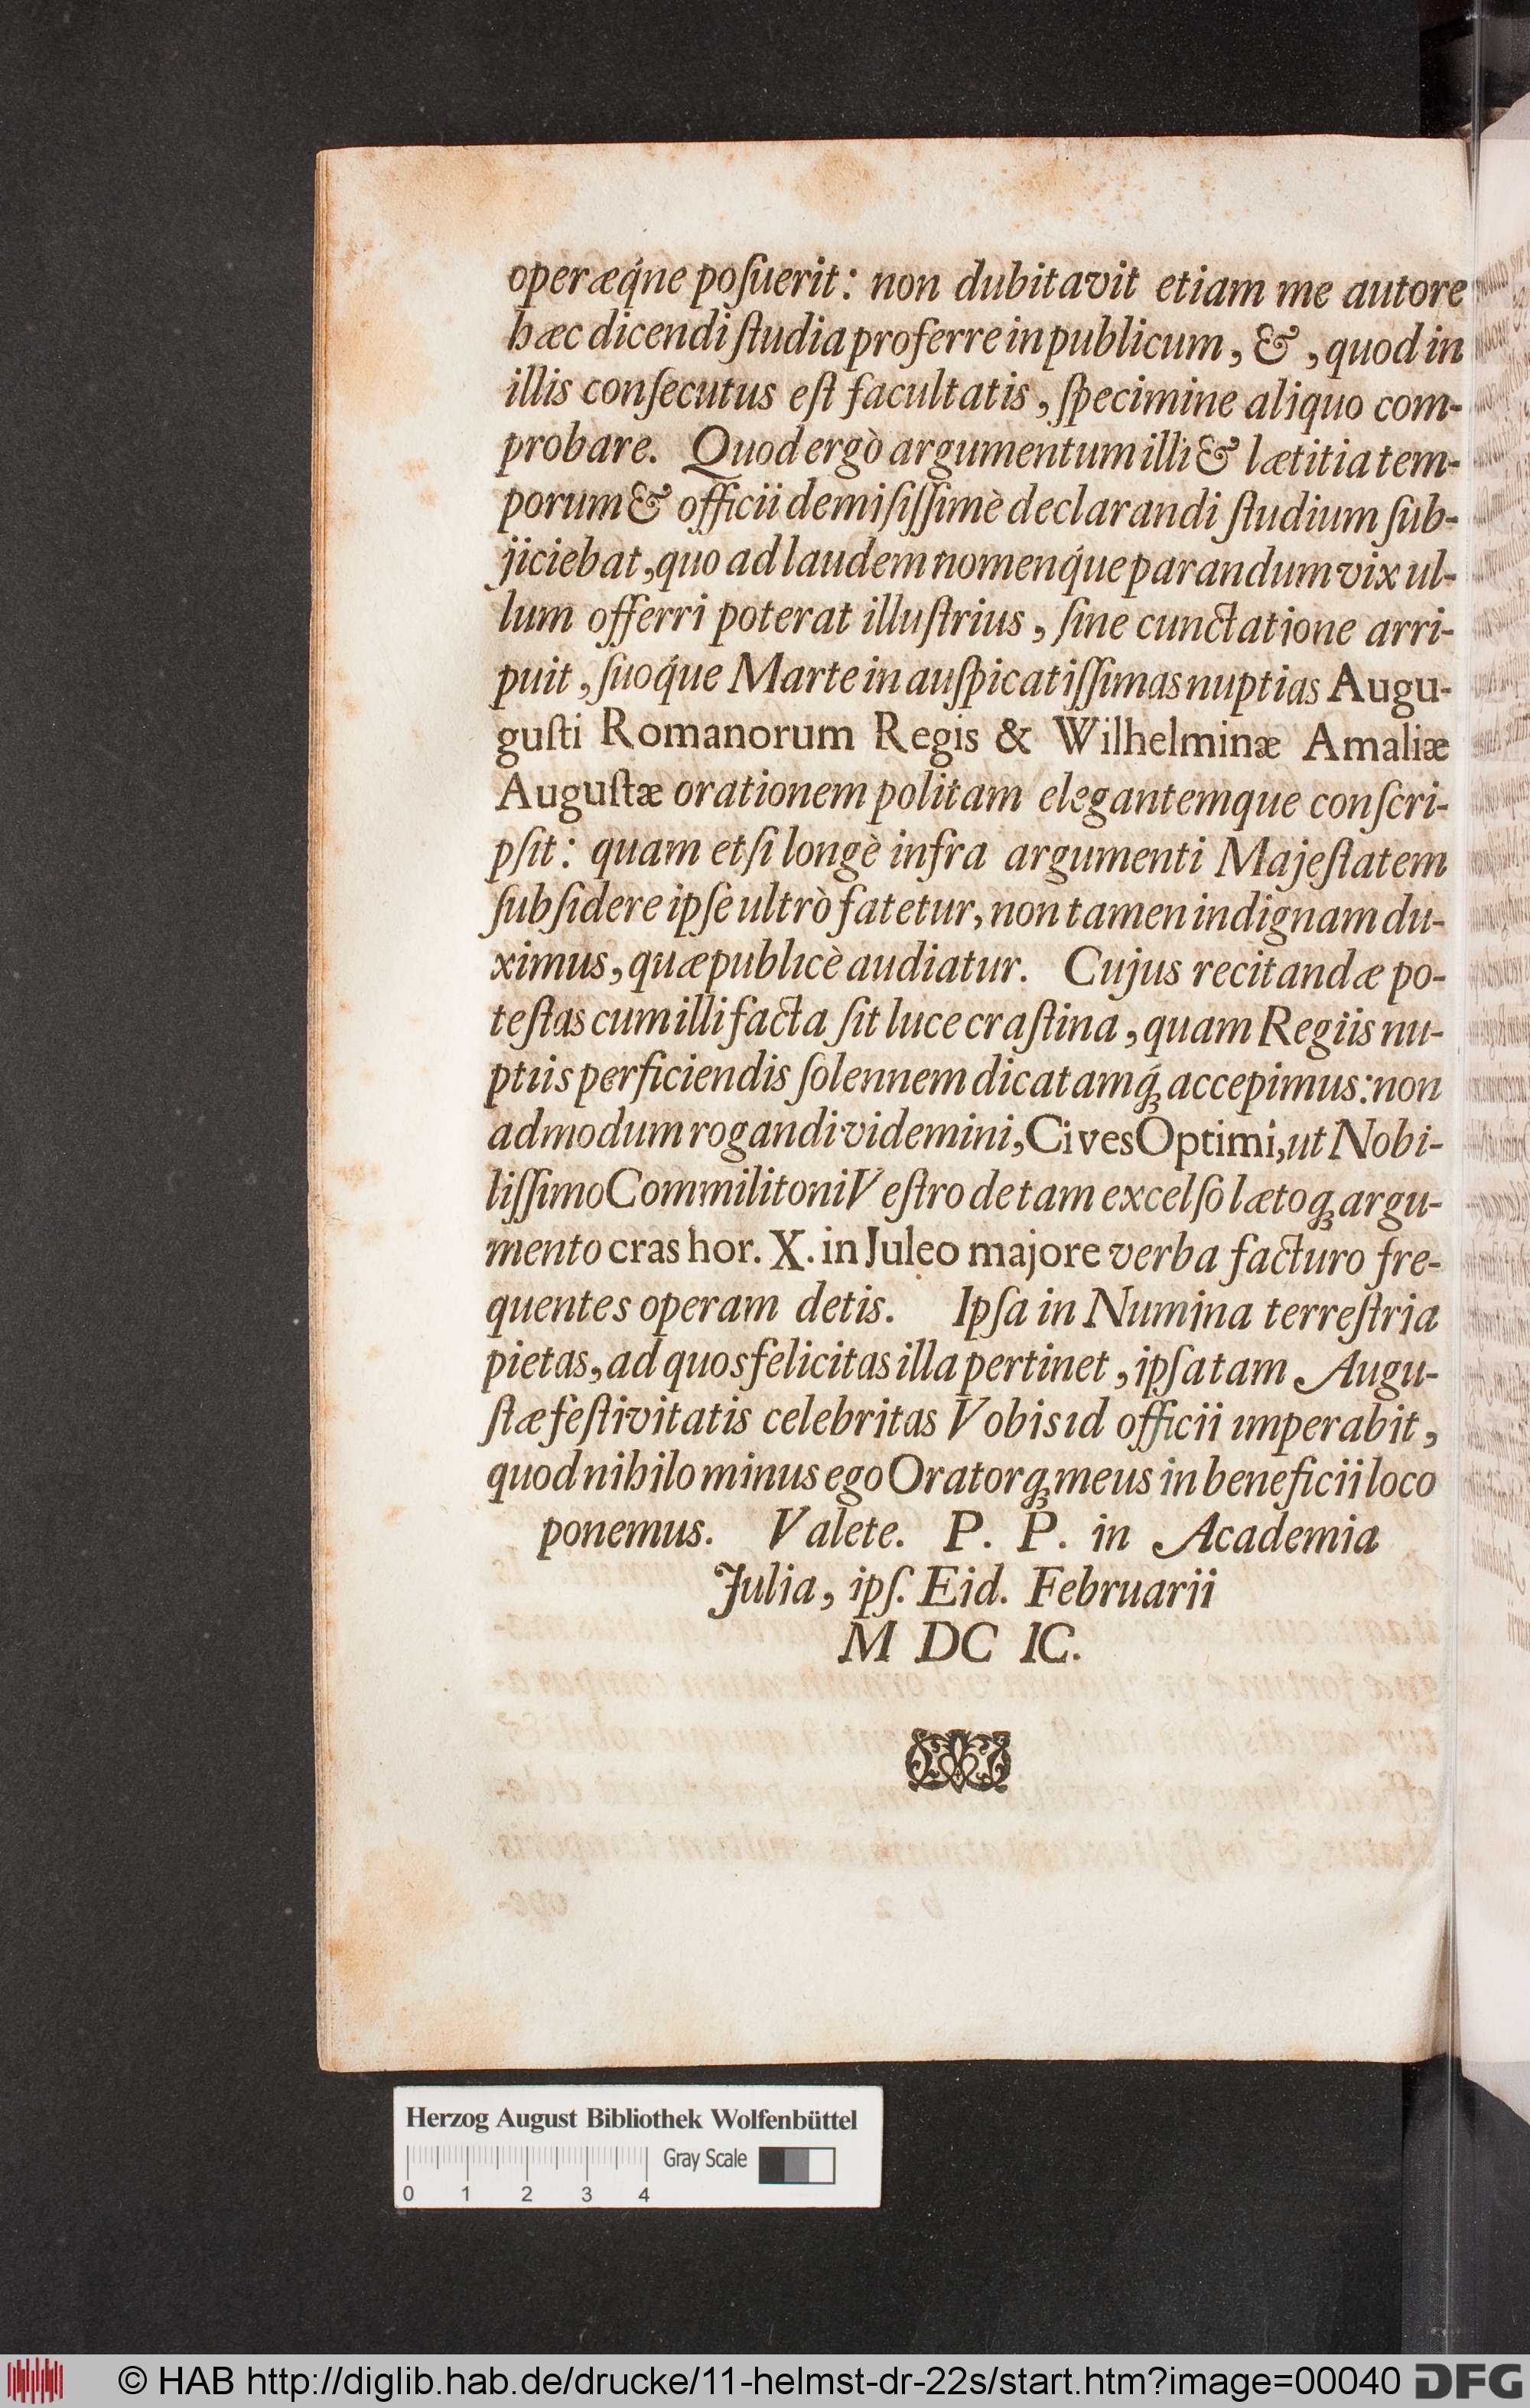 operæq́ne poſuerit: non dubitavit etiam me autore
hæc dicendi ſtudia proferre in publicum, &, quod in
illis conſecutus eſt facultatis, ſpecimine aliquo com-
probare. Quod ergò argumentum illi & lætitia tem-
porum & officii demiſiſſimè declarandi ſtudium ſub-
jiciebat, quo ad laudem nomenq́ue parandum vix ul-
lum offerri poterat illuſtrius, ſine cunctatione arri-
puit, ſuoq́ue Marte in auſpicatiſſimas nuptias Augu-
guſti Romanorum Regis & Wilhelminæ Amaliæ
Auguſtæ orationem politam elegantemque conſcri-
pſit: quam etſi longè infra argumenti Majeſtatem
ſubſidere ipſe ultrò fatetur, non tamen indignam du-
ximus, quæ publicè audiatur. Cujus recitandæ po-
teſtas cum illi facta ſit luce craſtina, quam Regiis nu-
ptiis perficiendis ſolennem dicatamq́ꝫ accepimus: non
admodum rogandi videmini, Cives Optimi, ut Nobi-
liſſimo Commilitoni Veſtro de tam excelſo lætoqꝫ argu-
mento cras hor. X. in Juleo majore verba facturo fre-
quentes operam detis. Ipſa in Numina terreſtria
pietas, ad quos felicitas illa pertinet, ipſa tam Augu-
ſtæ feſtivitatis celebritas Vobis id officii imperabit,
quod nihilo minus ego Oratorqꝫ meus in beneficii loco
ponemus. Valete. P. P. in Academia
Julia, ipſ. Eid. Februarii
M DC IC.
Herzog August Bibliothek Wolfenbüttel
Gray Scale
0 1 2 3 4
© HAB http://diglib.hab.de/drucke/11-helmst-dr-22s/start.htm?image=00040 DFG